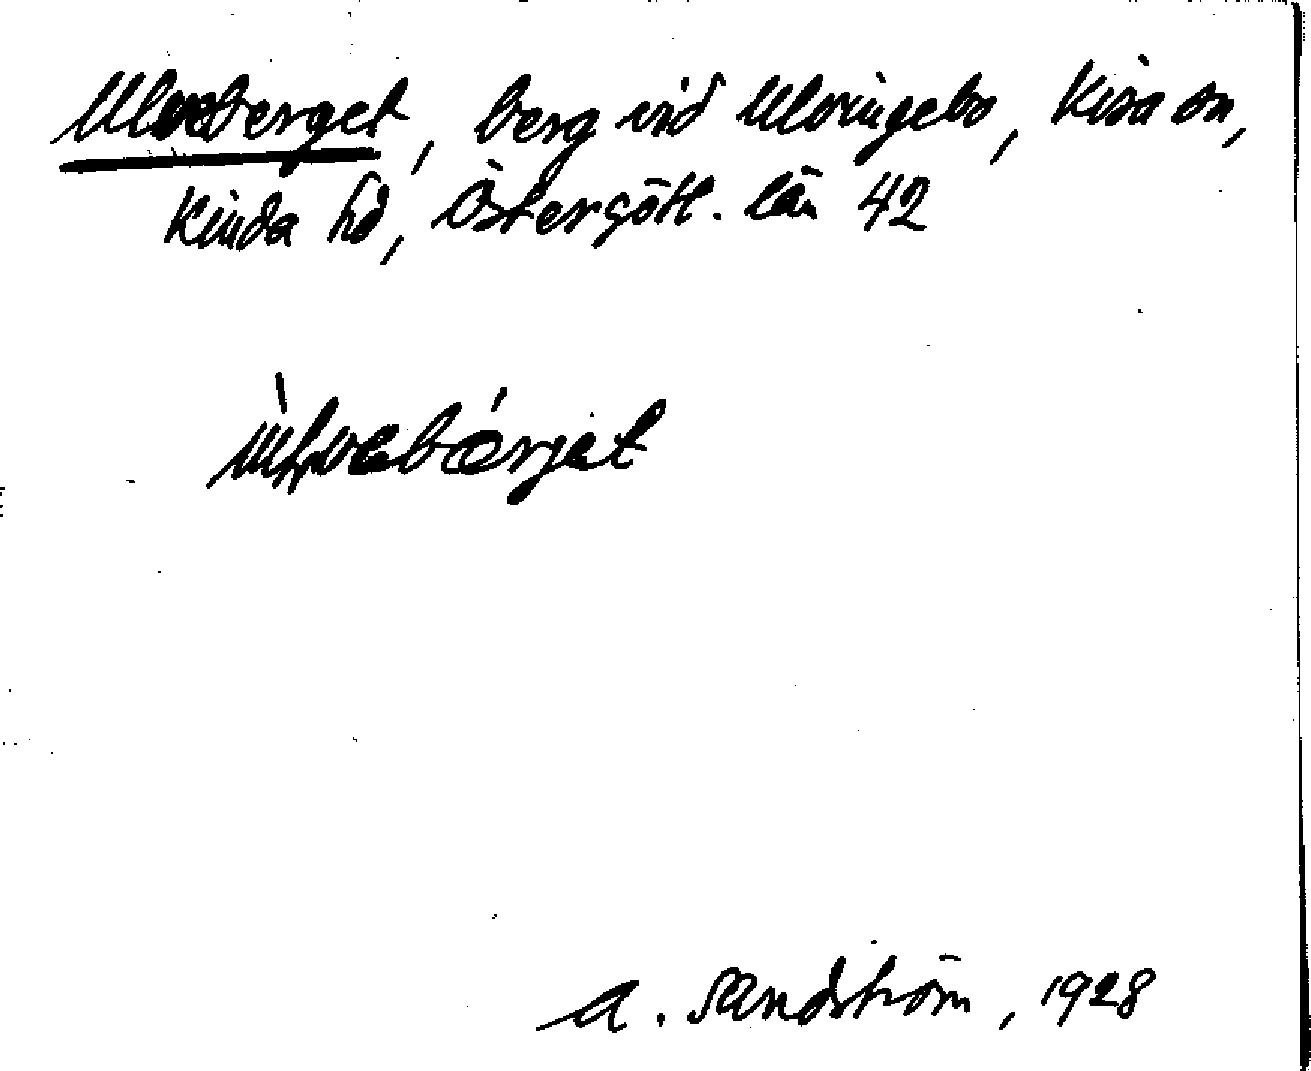 Ulveberget, berg vid Ulvingebo, Kisa sn,
Kinda hd, Östergötl. län 42
A. Sandström, 1928